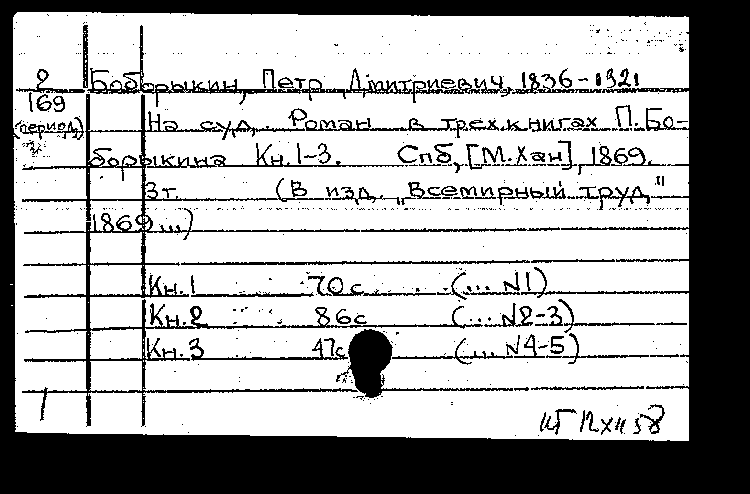 8 Боборыкин, Петр Дмитриевич, 1836-1921
169
(период.) На суд. Роман в трех книгах П.Бо-
борыкина Кн.1-3. Спб, [М.Хан], 1869.
3т. (В изд. „Всемирный труд,"
1869 ...)
Кн.1 70с. (... №1)
Кн.2 86с (... №2-3)
Кн.3 47с (... №4-5)
1